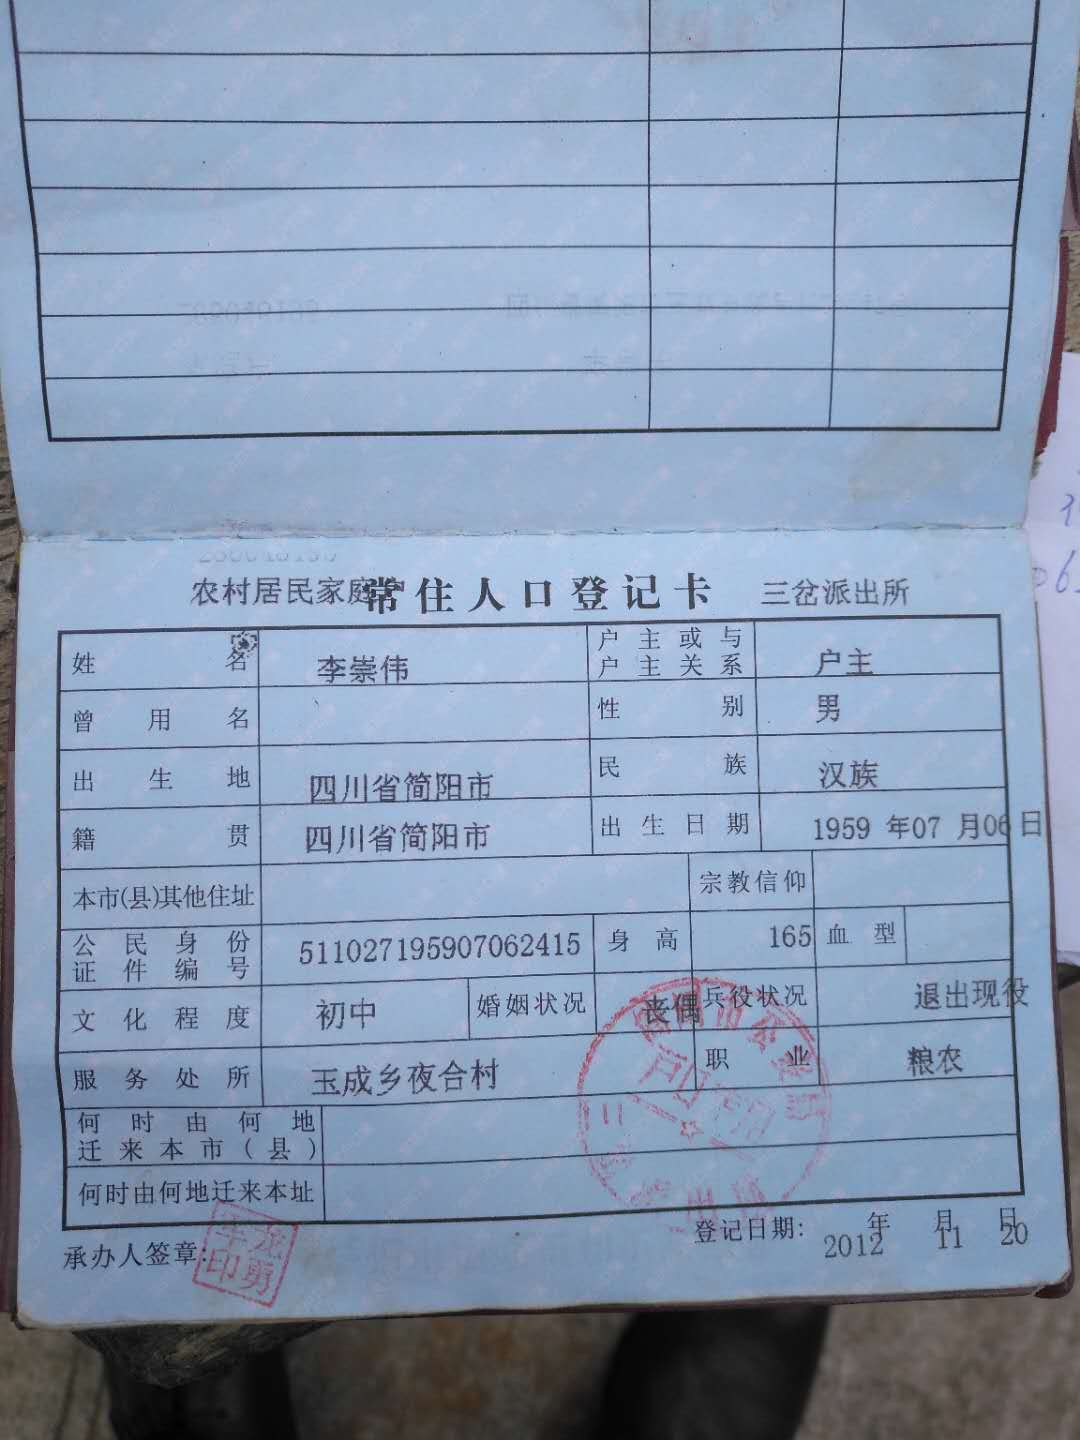 农村居民家庭户 常住人口登记卡 三岔派出所
姓名 李崇伟 户主或与户主关系 户主
曾用名 性别 男
出生地 四川省简阳市 民族 汉族
籍贯 四川省简阳市 出生日期 1959 年07 月06 日
本市(县)其他住址 宗教信仰
公民身份证件编号 511027195907062415 身高 165 血型
文化程度 初中 婚姻状况 丧偶 兵役状况 退出现役
服务处所 玉成乡夜合村 职业 粮农
何时由何地迁来本市(县)
何时由何地迁来本址
承办人签章: 登记日期: 2012 年 11 月 20 日